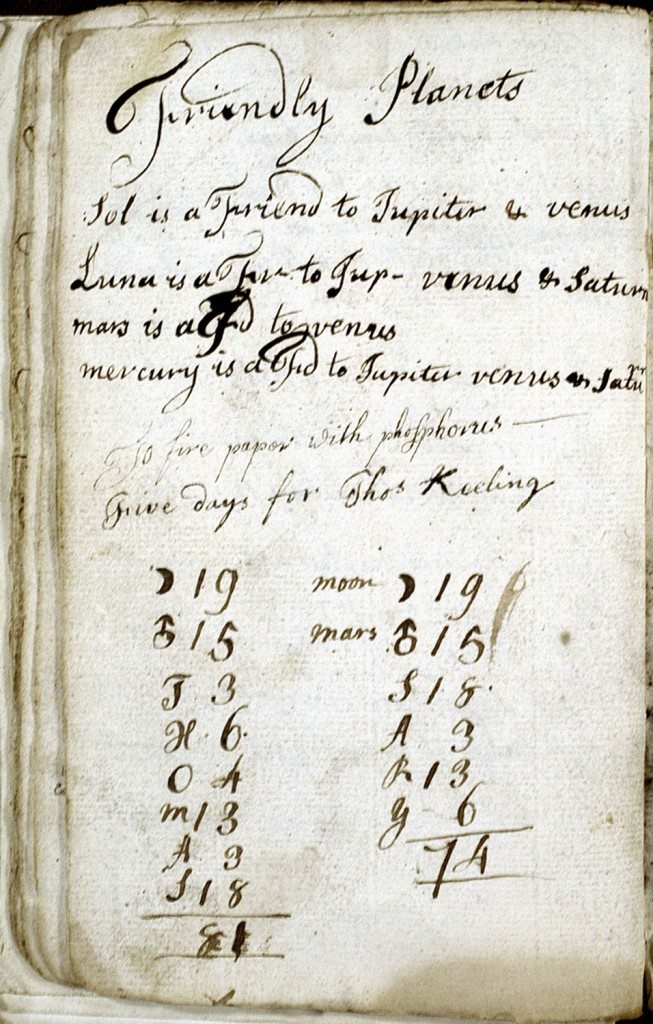 Friendly Planets
Sol is a Friend to Jupiter & venus
Luna is a Fr to Jup- venus & Saturn
mars is a Fd to venus
mercury is a Fd to Jupiter venus & Satur
To fire paper with phosphorus —
Five days for Thos Keeling
☽ 19 moon ☽ 19
♂ 15 mars ♂ 15
T 3 S 18
H 6 A 3
O 4 R 13
M 13 Y 6
A 3 74
S 18
81